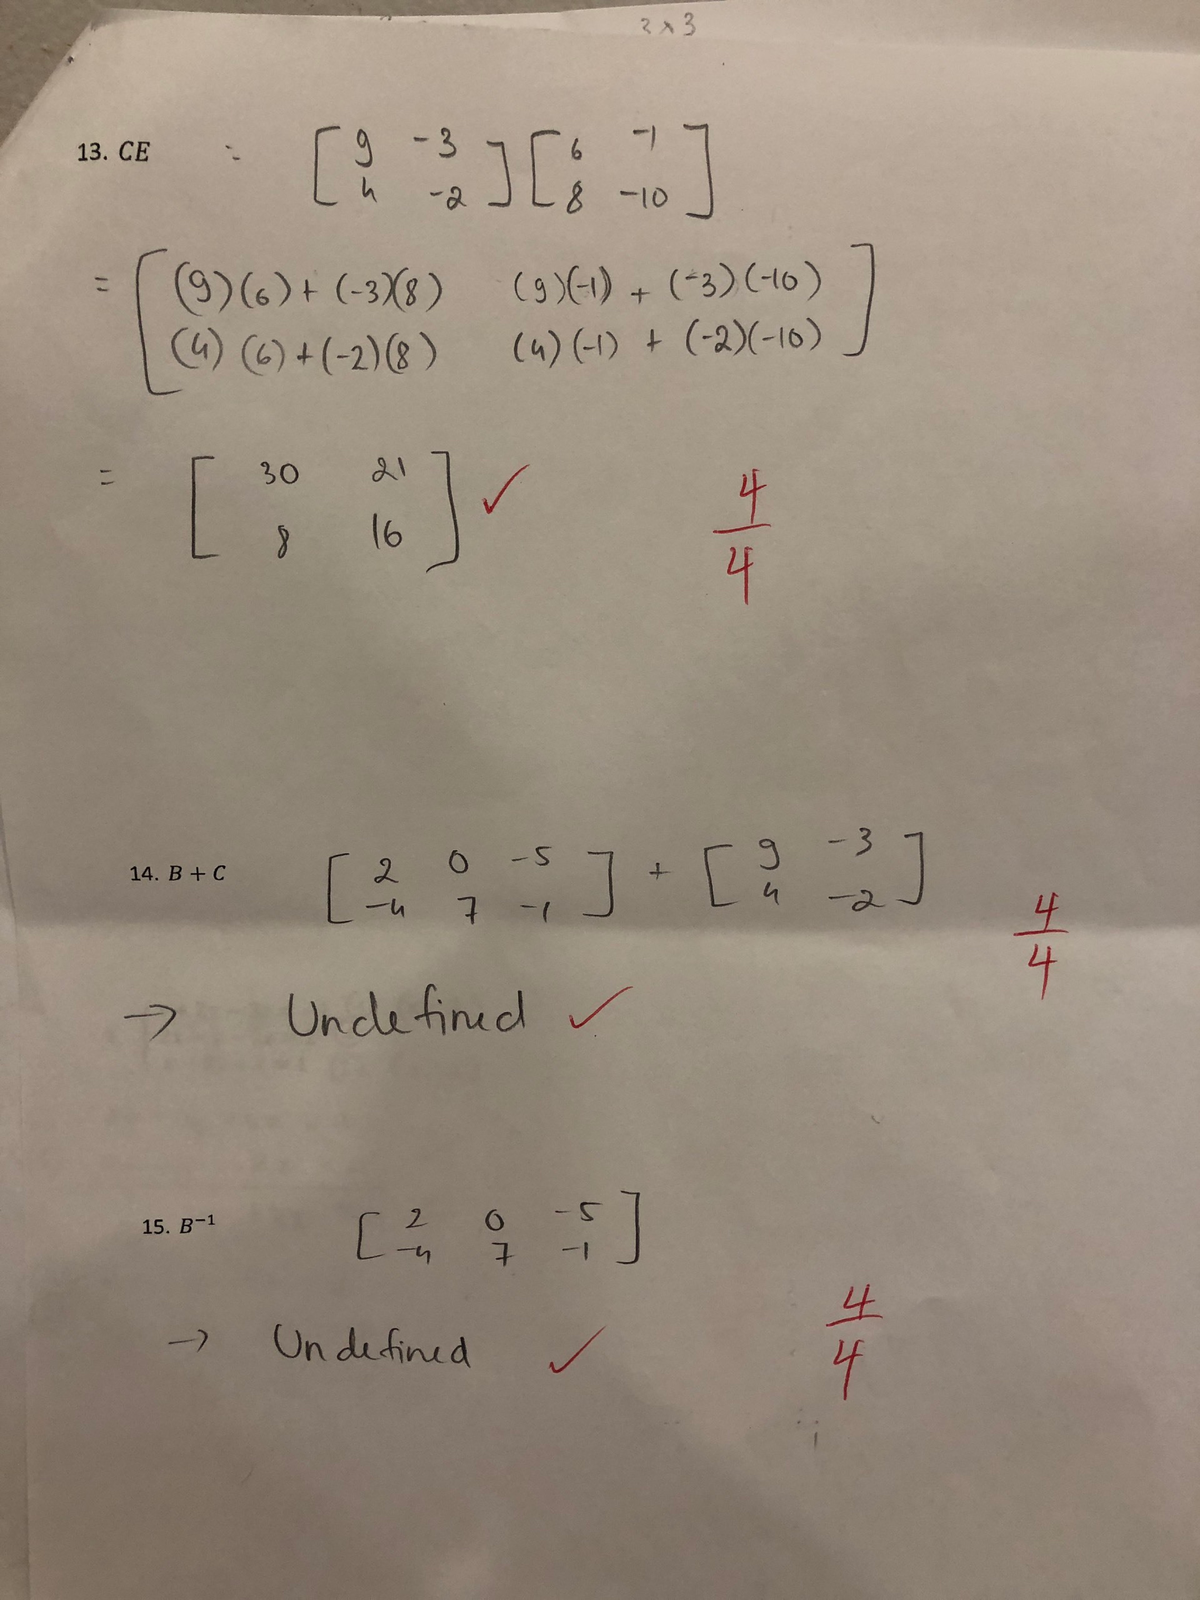 2 x 3
13. CE = [ 9 -3 ] [ 6 -1 ]
[ 4 -2 ] [ 8 -10 ]
= [ (9)(6) + (-3)(8) (9)(-1) + (-3)(-10) ]
[ (4)(6) + (-2)(8) (4)(-1) + (-2)(-10) ]
= [ 30 21 ] ✓ 4/4
[ 8 16 ]
14. B + C [ 2 0 -5 ] + [ 9 -3 ]
[ -4 7 -1 ] [ 4 -2 ]
4/4
→ Undefined ✓
15. B⁻¹ [ 2 0 -5 ]
[ -4 7 -1 ]
→ Undefined ✓ 4/4